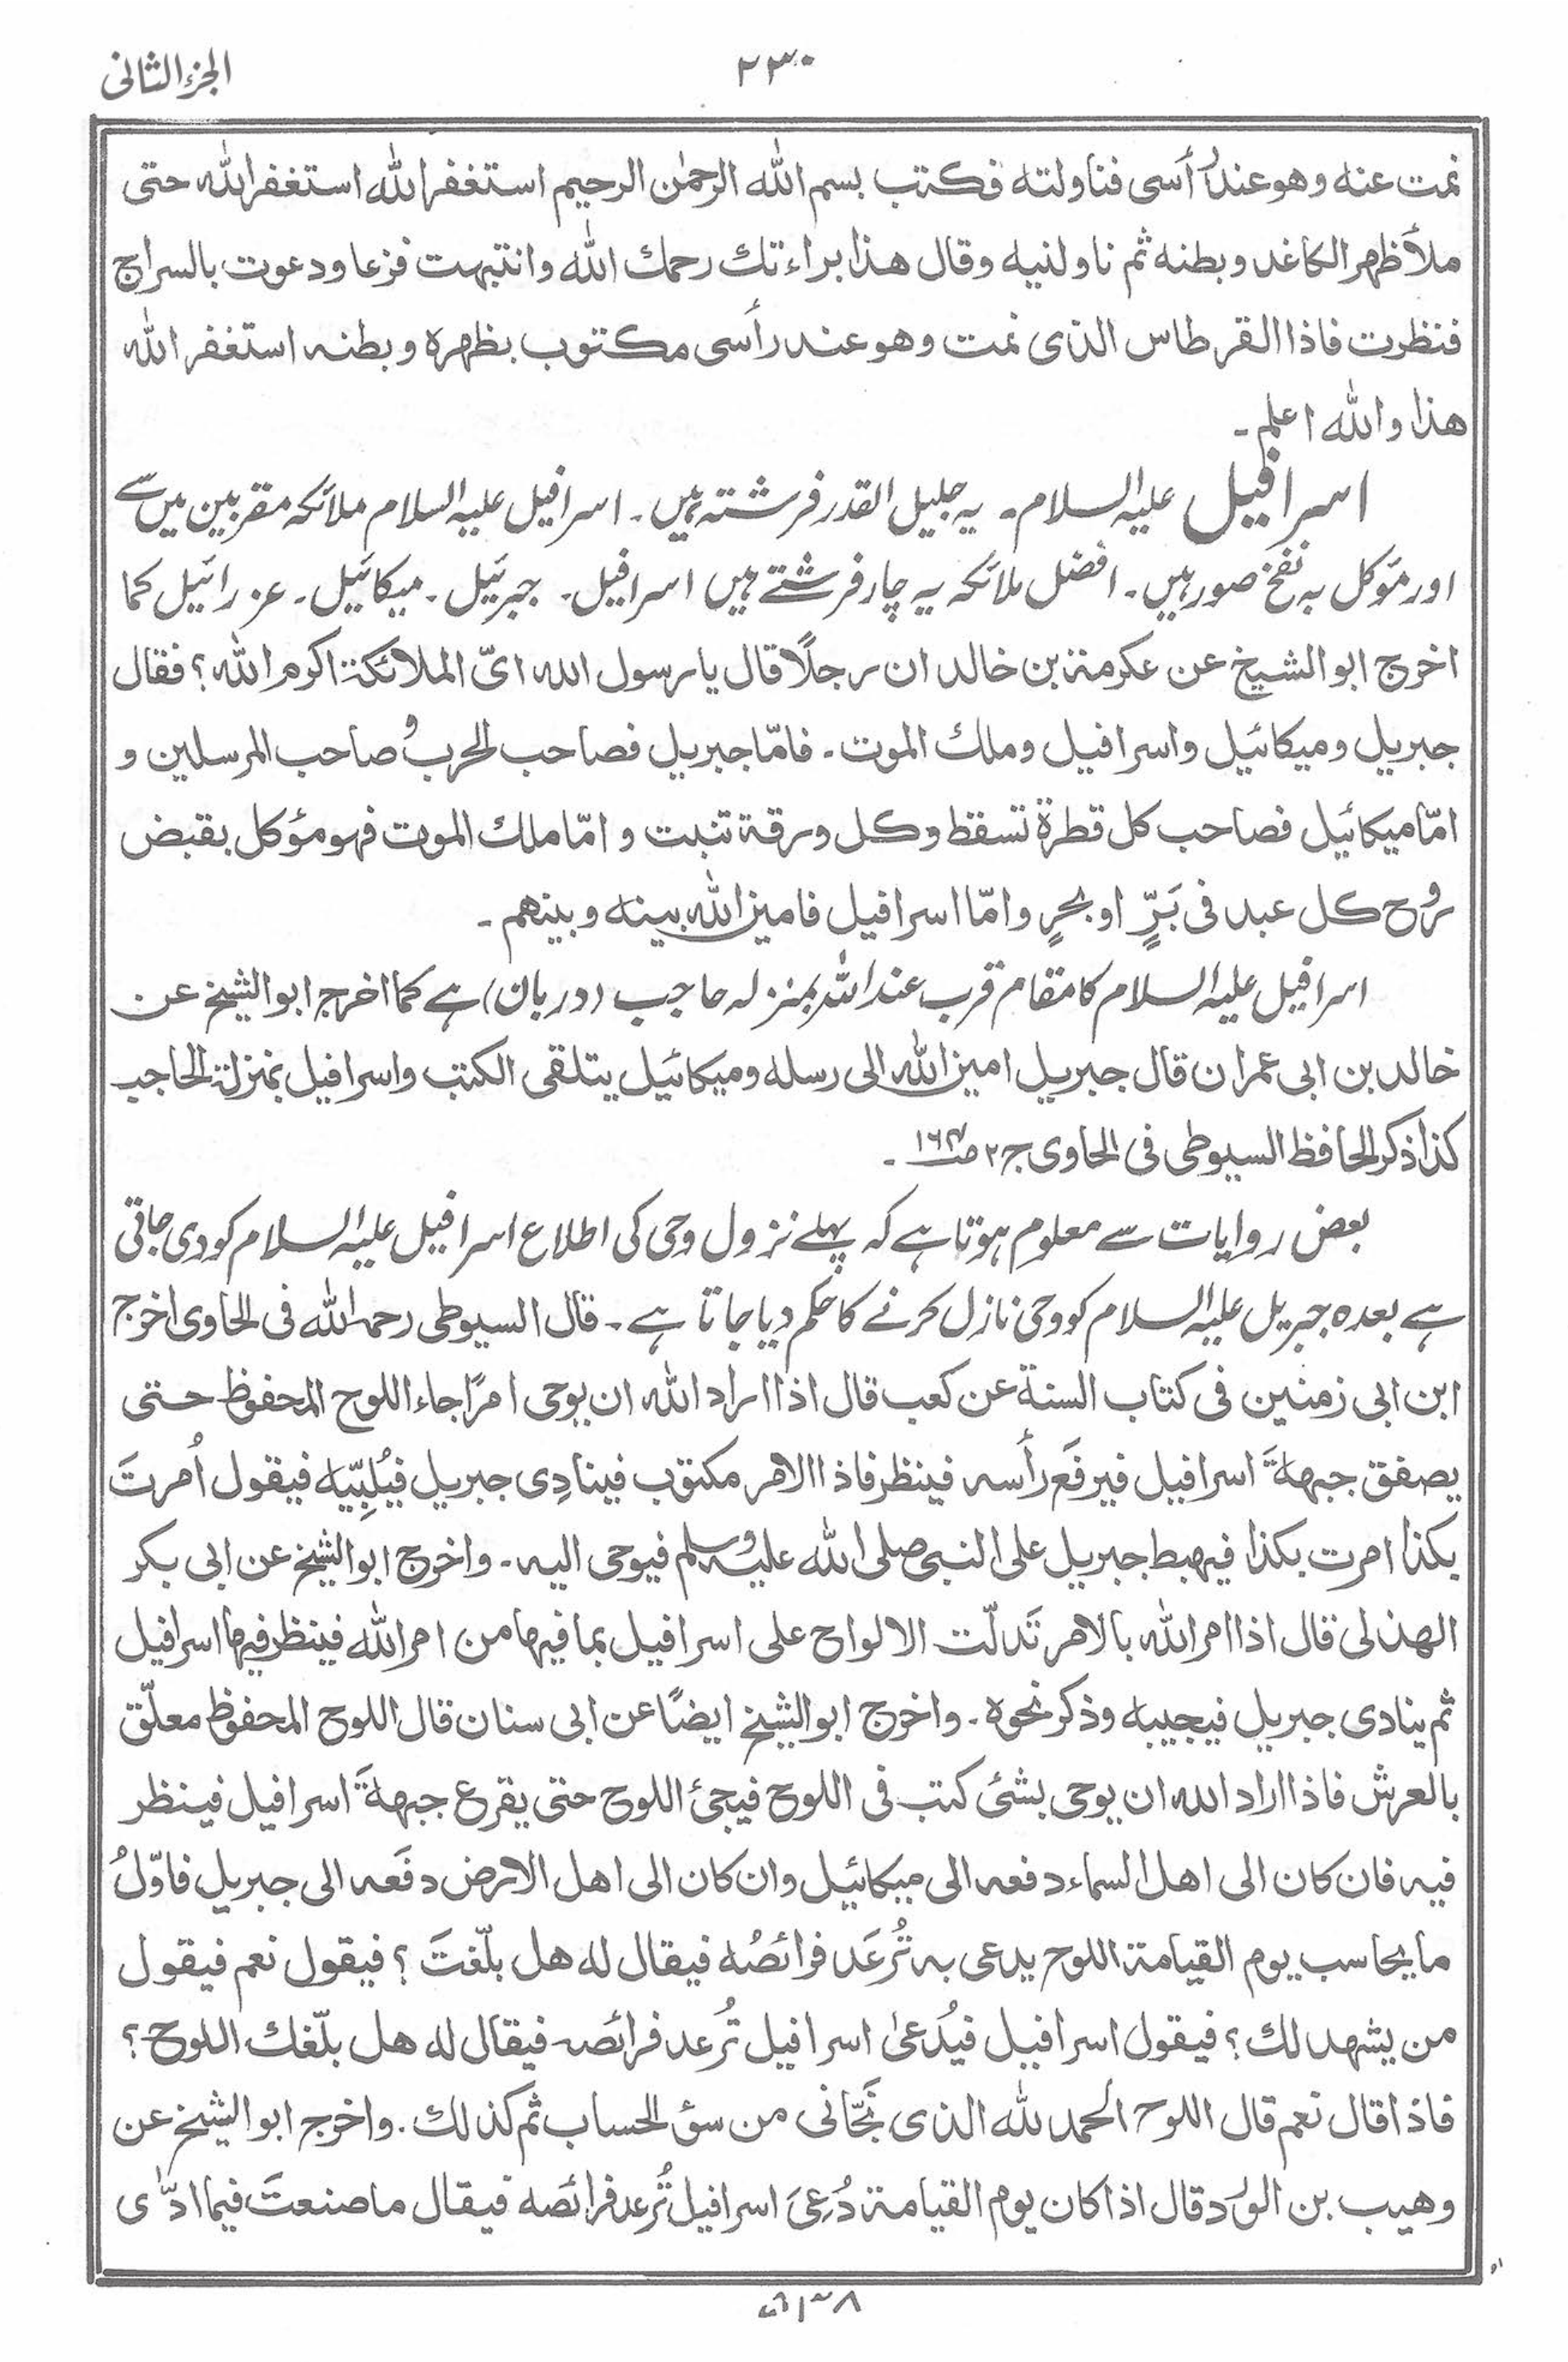 الجزء الثانى
٢٣٠
نمت عنه وهو عند رأسى فناولته فكتب بسم الله الرحمٰن الرحيم استغفر الله استغفر الله حتى
ملأ ظهر الكاغد وبطنه ثم ناولنيه وقال هذا براءتك رحمك الله وانتبهت فزعا ودعوت بالسراج
فنظرت فاذا القرطاس الذى نمت وهو عند رأسى مكتوب بظهره وبطنه استغفر الله
هذا والله اعلم ۔
اسرافیل علیہ السلام ۔ یہ جلیل القدر فرشتہ ہیں ۔ اسرافیل علیہ السلام ملائکہ مقربین میں سے
اور مؤکل بہ نفخ صور ہیں ۔ افضل ملائکہ یہ چار فرشتے ہیں اسرافیل ۔ جبرئیل ۔ میکائیل ۔ عزرائیل کما
اخرج ابو الشيخ عن عكرمة بن خالد ان رجلًا قال يا رسول الله اىّ الملائكة اكرم الله ؟ فقال
جبريل وميكائيل واسرافيل وملك الموت ۔ فامّا جبريل فصاحب الحرب وصاحب المرسلين و
امّا ميكائيل فصاحب كل قطرة تسقط وكل ورقة تنبت و امّا ملك الموت فهو مؤكل بقبض
روح كل عبد فى بَرٍّ او بحرٍ وامّا اسرافيل فامين الله بينه وبينهم ۔
اسرافیل علیہ السلام کا مقام قرب عند اللہ بمنزلہ حاجب (دربان) ہے کما اخرج ابو الشيخ عن
خالد بن ابى عمران قال جبريل امين الله الى رسله وميكائيل يتلقى الكتب واسرافيل بمنزلة الحاجب
كذا ذكر الحافظ السيوطى فى الحاوى ج ٢ ص١٦٤ ۔
بعض روایات سے معلوم ہوتا ہے کہ پہلے نزول وحی کی اطلاع اسرافیل علیہ السلام کو دی جاتی
ہے بعدہ جبریل علیہ السلام کو وحی نازل کرنے کا حکم دیا جاتا ہے ۔ قال السيوطى رحمه الله فى الحاوى اخرج
ابن ابى زمنين فى كتاب السنة عن كعب قال اذا اراد الله ان يوحى امرًا جاء اللوح المحفوظ حتى
يصفق جبهةَ اسرافيل فيرفَع رأسه فينظر فاذا الامر مكتوب فينادِى جبريل فيُلبِّيه فيقول اُمرتَ
بكذا امرت بكذا فيهبط جبريل على النبى صلى الله عليه وسلم فيوحى اليه ۔ واخرج ابو الشيخ عن ابى بكر
الهذلى قال اذا امر الله بالامر تَدلّت الالواح على اسرافيل بما فيها من امر الله فينظر فيها اسرافيل
ثم ينادى جبريل فيجيبه وذكر نحوه ۔ واخرج ابو الشيخ ايضًا عن ابى سنان قال اللوح المحفوظ معلّق
بالعرش فاذا اراد الله ان يوحى بشئ كتب فى اللوح فيجئ اللوح حتى يقرع جبهةَ اسرافيل فينظر
فيه فان كان الى اهل السماء دفعه الى ميكائيل وان كان الى اهل الارض دفَعه الى جبريل فاوّلُ
ما يحاسب يوم القيامة اللوح يدعى به تُرعَد فرائصُه فيقال له هل بلّغتَ ؟ فيقول نعم فيقول
من يشهد لك ؟ فيقول اسرافيل فيُدعىٰ اسرافيل تُرعد فرائصه فيقال له هل بلّغك اللوح ؟
فاذا قال نعم قال اللوح الحمد لله الذى نَجّانى من سؤ الحساب ثم كذلك . واخرج ابو الشيخ عن
وهيب بن الورد قال اذا كان يوم القيامة دُعِىَ اسرافيل تُرعد فرائصه فيقال ما صنعتَ فيما ادّٰى